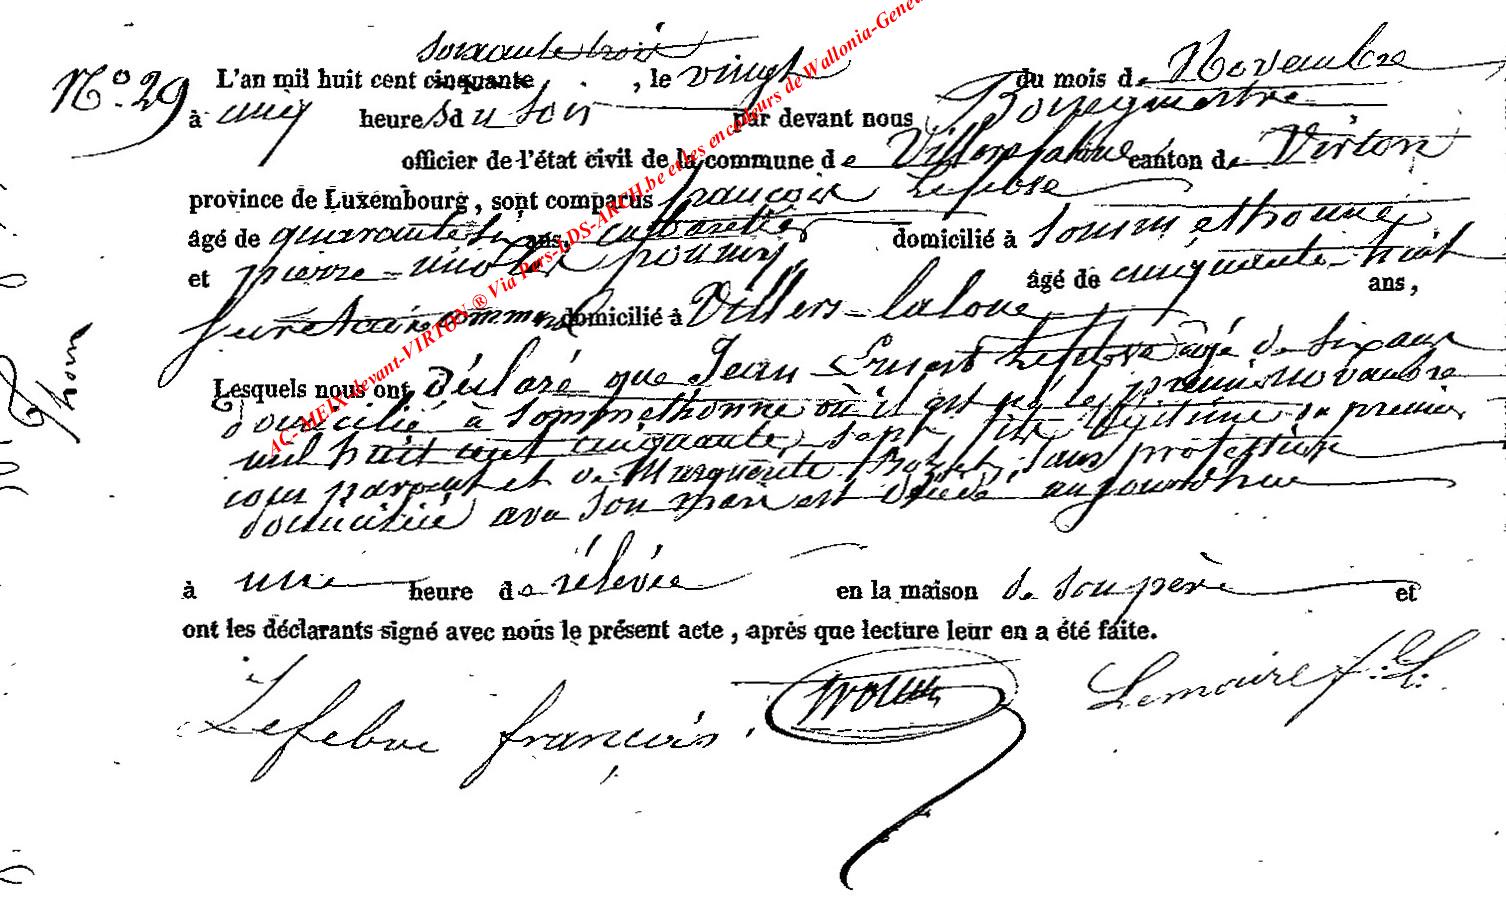 soixante trois
N.° 29 L'an mil huit cent cinquante , le vingt du mois de Novembre
à cinq heures du soir par devant nous Bourgmestre
officier de l'état civil de la commune de Villers la loue canton de Virton
province de Luxembourg, sont comparus françois Lefebve
âgé de quarante six ans, cabaretier domicilié à Sommethonne
et pierre - âgé de cinquante - huit ans,
Secretaire communal domicilié à Villers - laloue
Lesquels nous ont Déclaré que Jean Lefebve agé de six ans
domicilié à Sommethonne où il est né le premier novembre
mil huit cent cinquante sept fils légitime du premier
comparant et de Marguerite sans profession
domiciliée avec son mari est décédé aujourd'hui
à une heure de rélévée en la maison de son père et
ont les déclarants signé avec nous le présent acte, après que lecture leur en a été faite.
Lefebve françois Lemoire
AC-MEIX-devant-VIRTON ® Via Pars-LDS-ARCH.be et les encodeurs de Wallonia-Gene